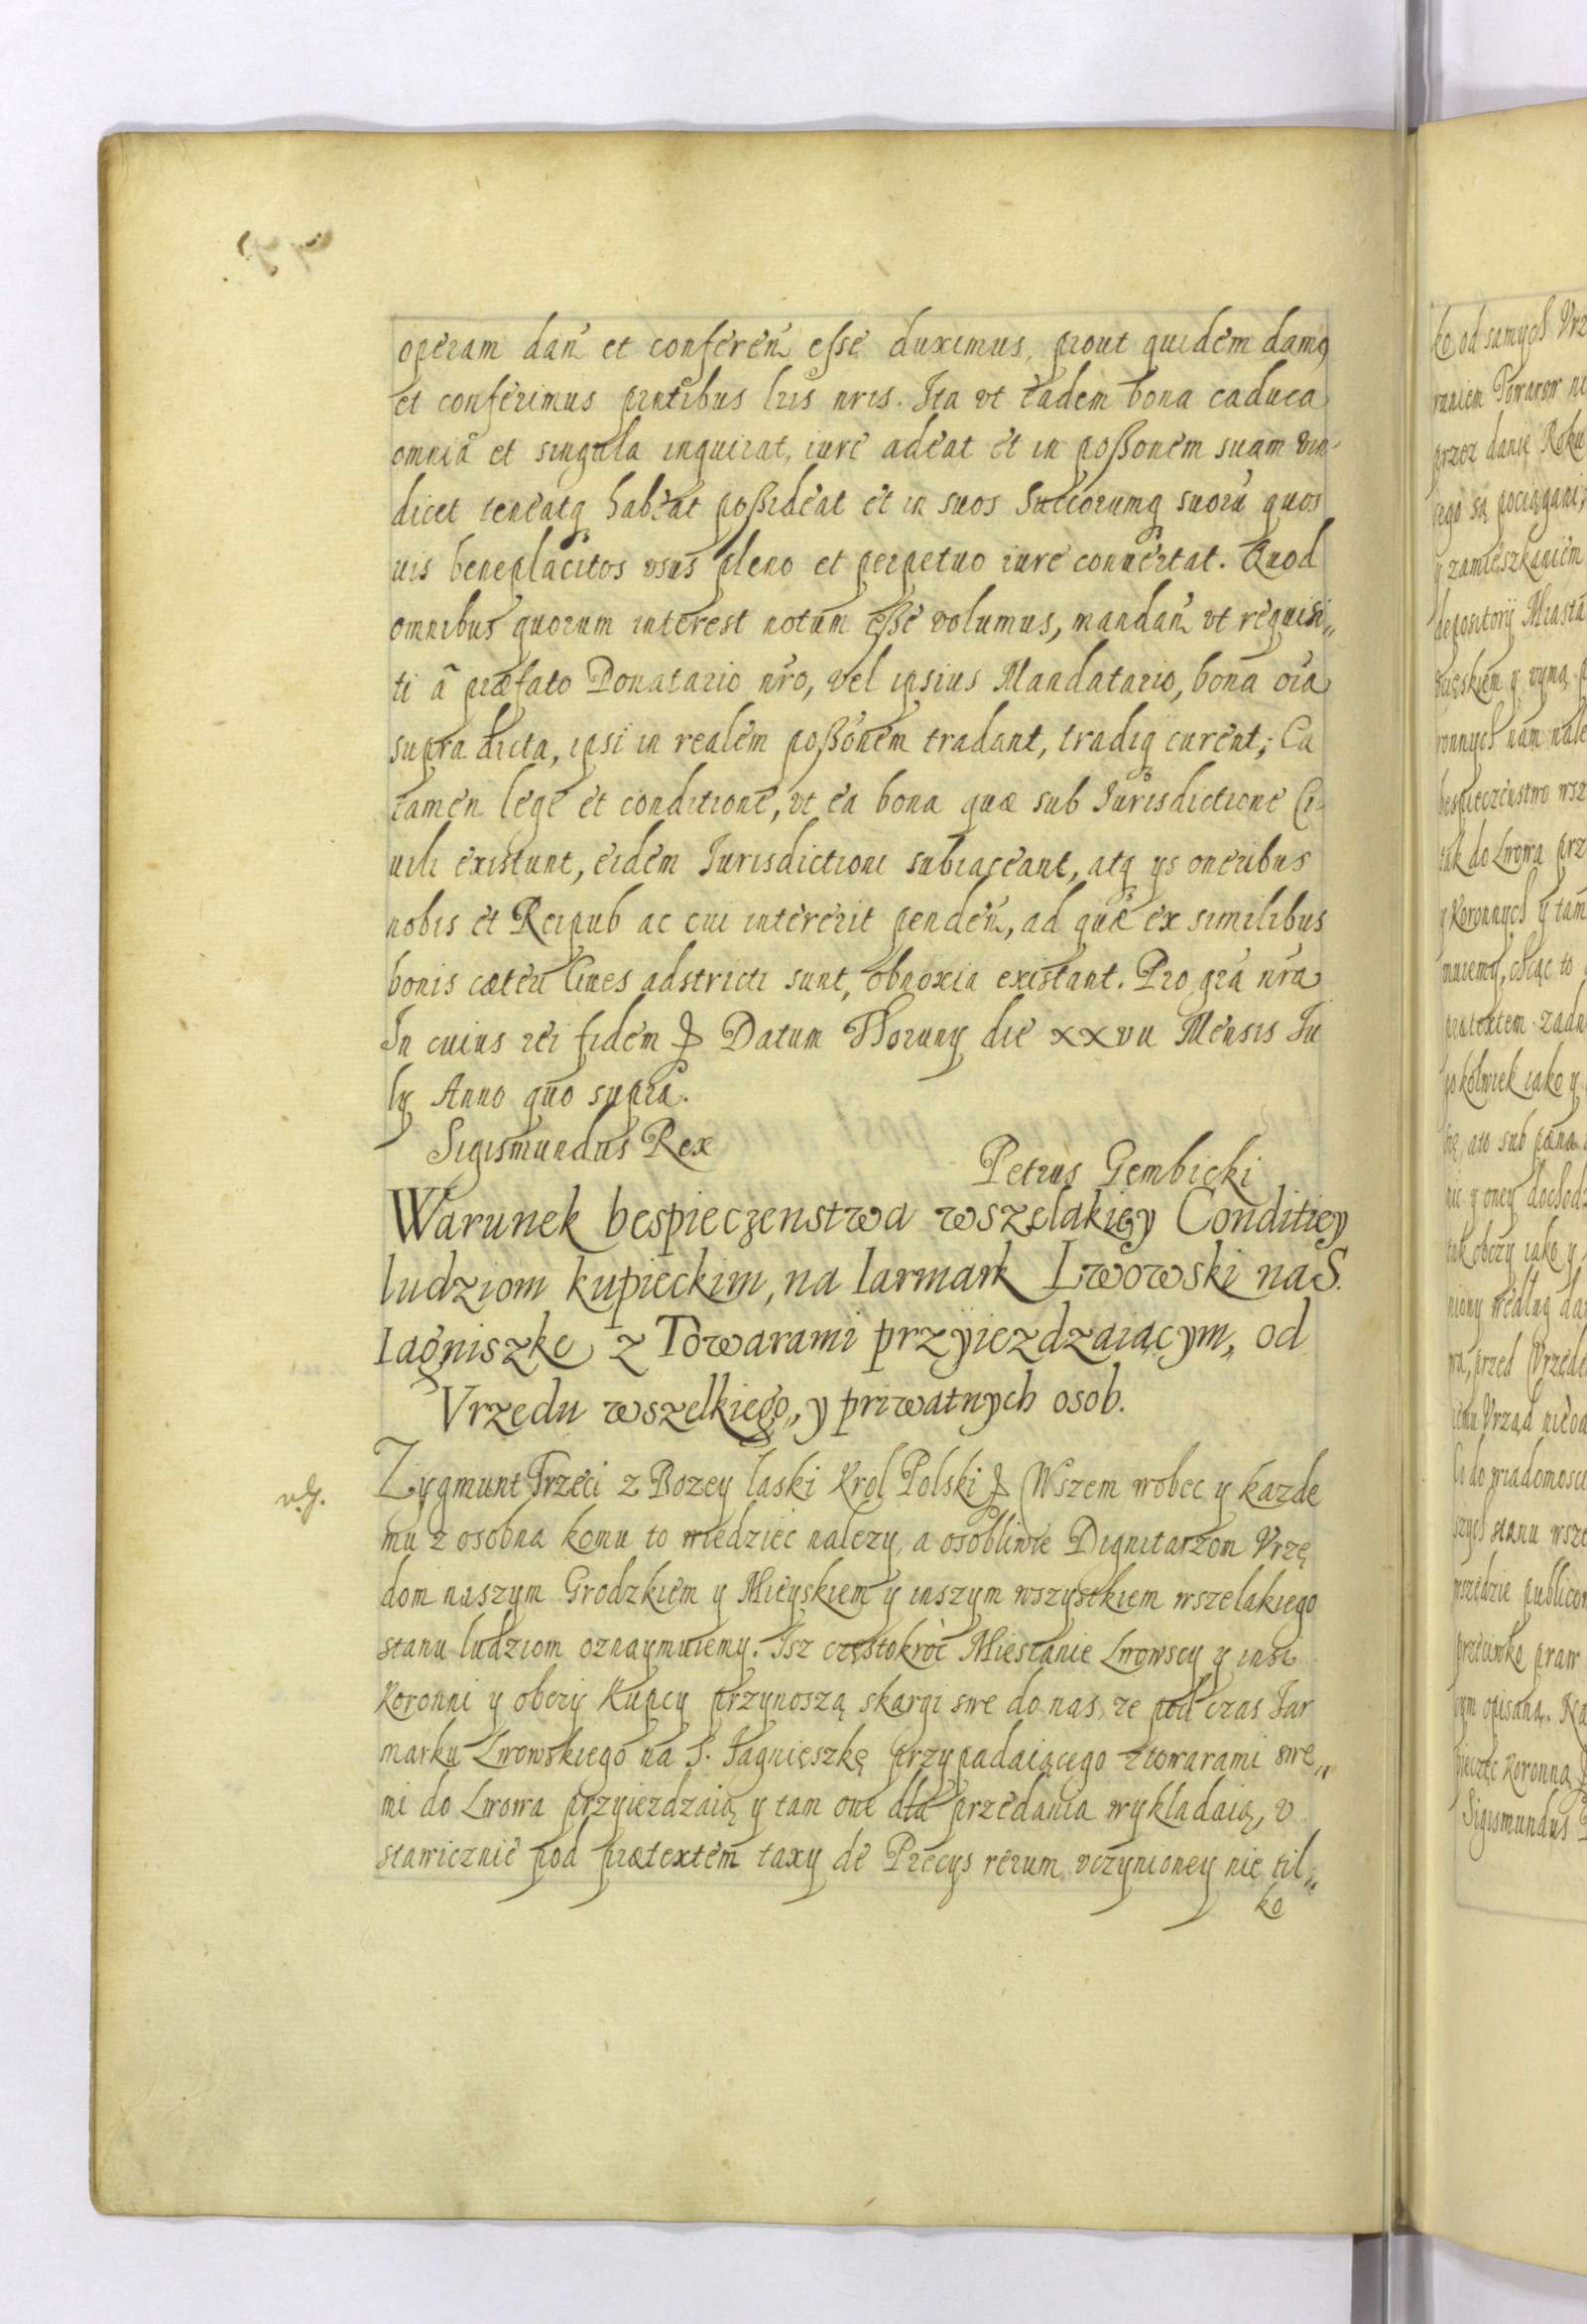 operam dan̄ et conferen̄ esse duximus, prout quidem damq
et conferimus pntibus lris nris. Ita vt eadem bona caduca
omnia et singula inquirat, iure adeat et in poßonem suam vin-
dicet teneatq habeat poßideat et in suos Succorumq suoru quos
uis beneplacitos vsus pleno et perpetuo iure conuertat. Quod
omnibus quorum interest notum eße volumus, mandan̄ vt requisi„
ti a præfato Donatario nro, vel ipsius Mandatario, bona oia
supra dicta, ipsi in realem poßonem tradant, tradiq curent; Ea
tamen lege et conditione, vt ea bona quæ sub Iurisdictione Ci-
uili existunt, eidem Iurisdictioni subiaceant, atq ys oneribus
nobis et Reipub ac cui intererit penden̄, ad quæ ex similibus
bonis cæteri Ciues adstricti sunt, obnoxia existant. Pro gra nra
In cuius rei fidem & Datum Thoruny die xxvii Mensis Iu
ly Anno quo supra.
Sigismundus Rex
Petrus Gembicki
Warunek bespieczenstwa wszelakiey Conditiey
ludziom kupieckim, na Iarmark Lwowski na S.
Iagniszke z Towarami przyiezdzaiącym, od
Vrzedu wszelkiego, y priwatnych osob.
Zygmunt Trzeci z Bozey laski Krol Polski & Wszem wobec y kazde
mu z osobna komu to wiedziec nalezy, a osobliwie Dignitarzom Vrzę
dom naszym Grodzkiem y Mieyskiem y inszym wszystkiem wszelakiego
stanu ludziom oznaymuiemy. Isz częstokroc Miescanie Lwowscy y insi
Koronni y obczy Kupcy przynoszą skargi swe do nas, ze pod czas Iar
marku Lwowskiego na S. Iagnięszkę przypadaiącego z towarami swe„
mi do Lwowa przyiezdzaią y tam one dla przedania wykładaią, v
stawicznie pod prætextem taxy de Precys rerum vczynioney nie til„
ko